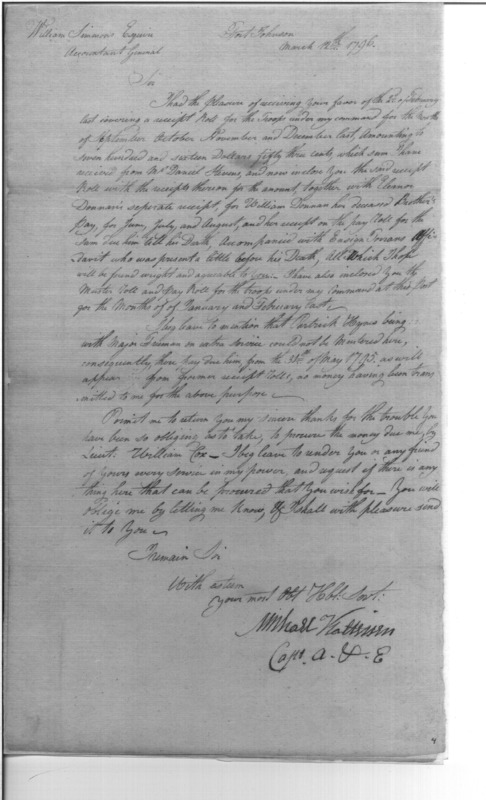 William Simmons Esquire Fort Johnson
Accountant General March 12th 1796.
Sir
I had the pleasure of receiving your favor of the 2d of February
last covering a receipt Roll for the Troops under my command for the Month
of September October November and December last, amounting to
Seven hundred and sixteen Dollars fifty three cents, which sum I have
received from Mr Daniel Stevens, and now inclose you the said receipt
Roll with the receipts thereon for the amount, together with Eleanor
Donnan's seperate receipt, for William Donnan her deceased Brother's
Pay, for June, July, and August, and her receipt on the pay Roll for the
Sum due him till his Death, Accompanied with Ensign Torrans Affi-
davit who was present a little before his Death, All Which I hope
will be found wright and agreeable to you. I have also inclosed you the
Muster Roll and Pay Roll for the Troops under my Command at this Post
for the Months of of January and February last.
I beg leave to mention that Patrick Haynes being
with Major Freeman on extra Service could not be Mustered here,
consequently there pay due him from the of May 1795, as will
appear from former receipt Rolls, no money having been trans
mitted to me for the above purpose
Permit me to return you my sincere thanks for the trouble you
have been so obliging as to take, to procure the money due me by
Lieut. William Cox — I beg leave to render you or any friend
of yours every service in my power, and request if there is any
thing here that can be procured that you wish for — You will
oblige me by letting me know, & I shall with pleasure send
it to you
I remain Sir
With esteem
your most Obt Hble Servt:
Michael Kalteisen
Capt. A. & E